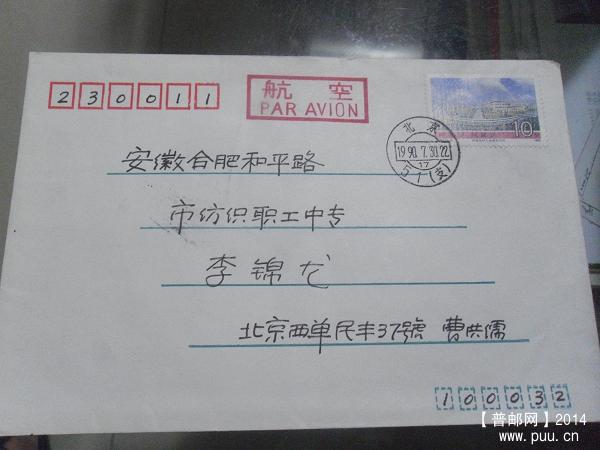 230011
航空
PAR AVION
10
北京
1990.7.30.22
17
51(支)
安徽合肥和平路
市纺织职工中专
李锦龙
北京西单民丰37號 曹洪儒
100032
【普邮网】2014
www.puu.cn